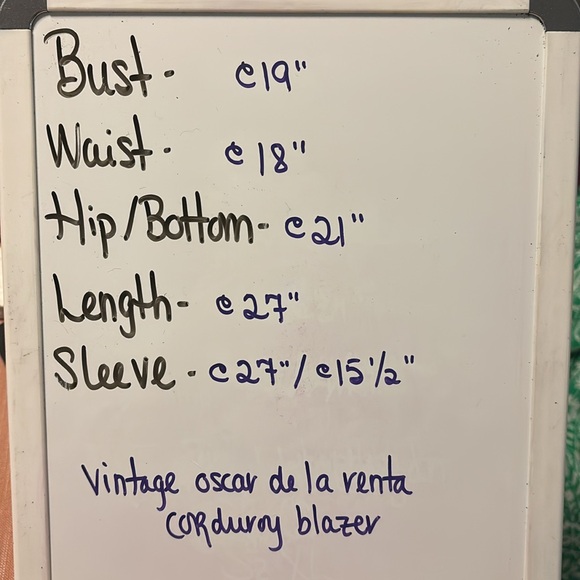 Bust - c19"
Waist - c18"
Hip/Bottom - c21"
Length - c27"
Sleeve - c27"/c15 1/2"
Vintage oscar de la renta
corduroy blazer